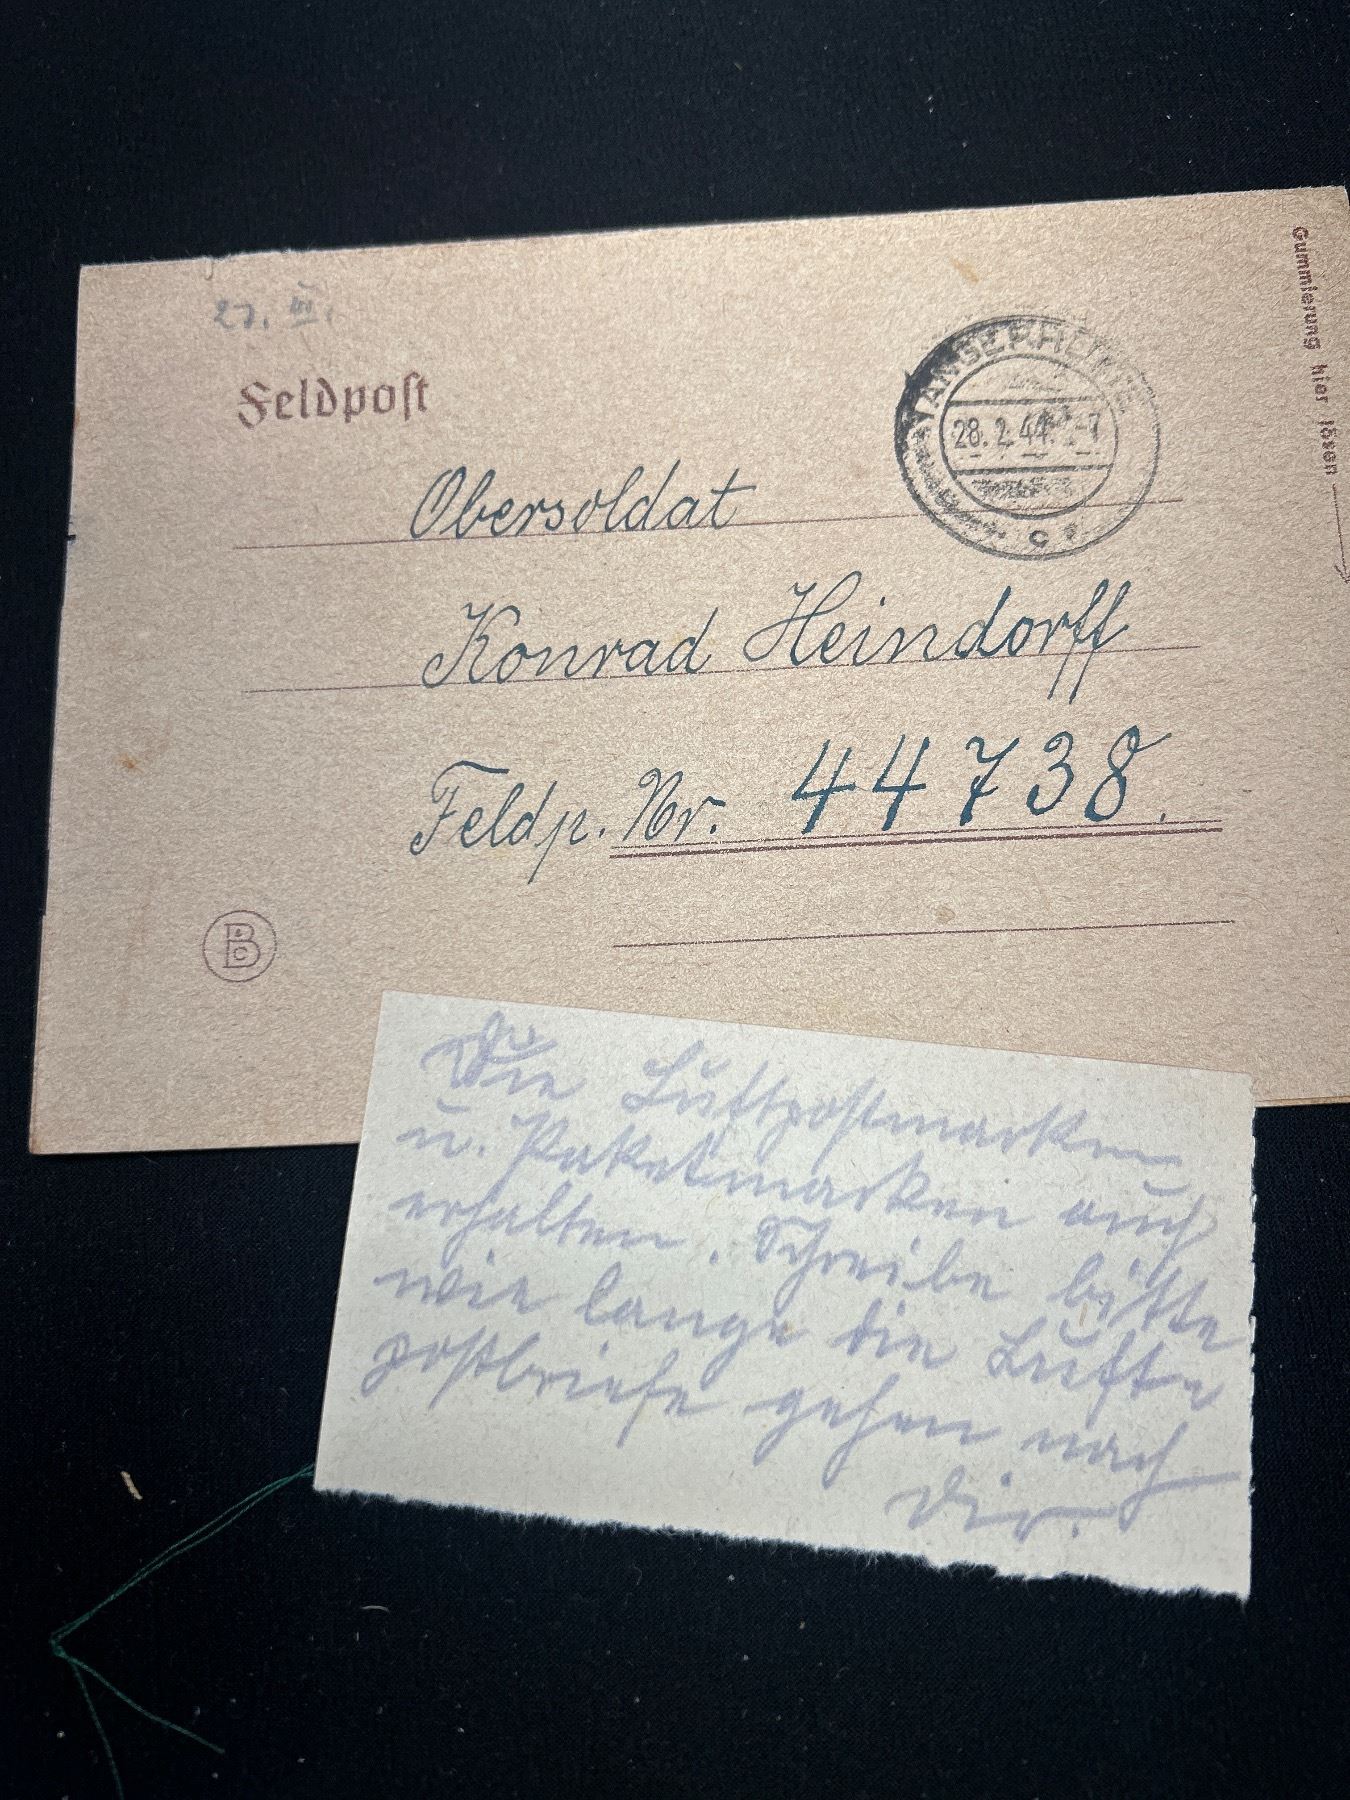 27. III.
Feldpost
TANGERHÜTTE
28.2.44.-7
c
Gummierung hier lösen
Obersoldat
Konrad Heindorff
Feldp. Nr. 44738.
B
Die Luftpostmarken
u. Paketmarken auch
erhalten. Schreibe bitte
wie lange die Luft-
postbriefe gehen nach
Dir.